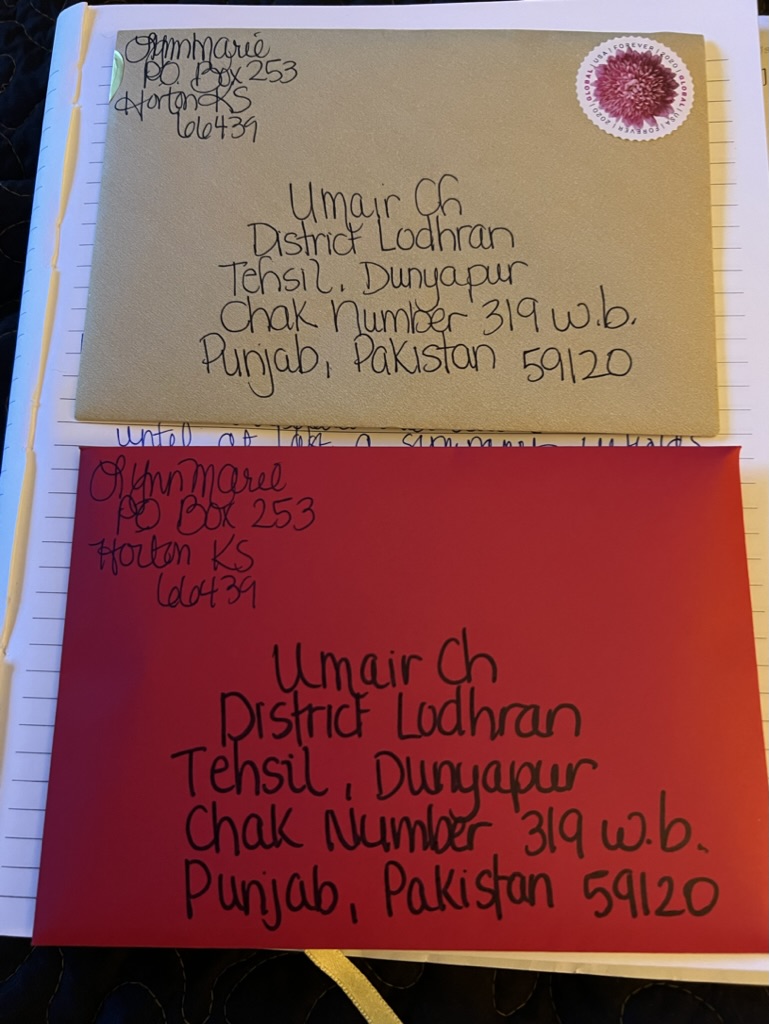 LynnMarie
PO Box 253
Horton KS
66439
GLOBAL | USA | FOREVER | 2020 | GLOBAL | USA | FOREVER | 2020 |
Umair Ch
District Lodhran
Tehsil, Dunyapur
Chak Number 319 w.b.
Punjab, Pakistan 59120
LynnMarie
PO Box 253
Horton KS
66439
Umair Ch
District Lodhran
Tehsil, Dunyapur
Chak Number 319 w.b.
Punjab, Pakistan 59120